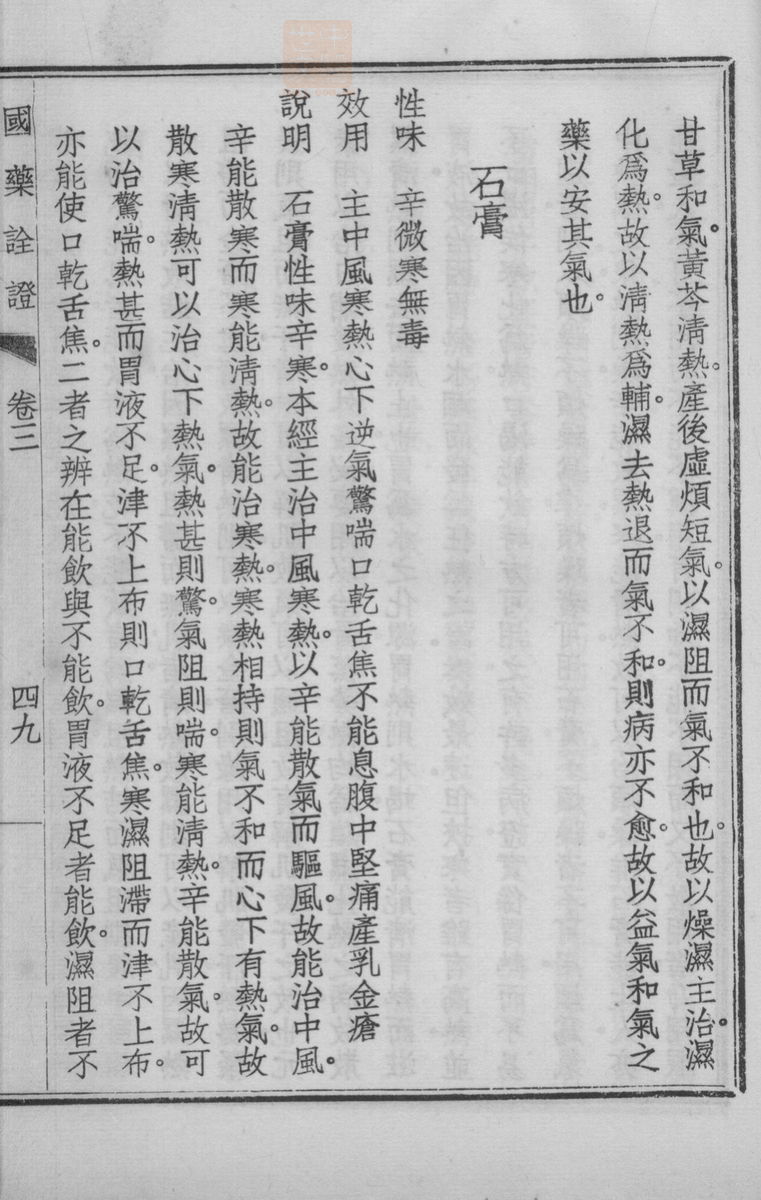 甘草和氣。黃芩淸熱。產後虛煩短氣。以濕阻而氣不和也。故以燥濕主治。濕
化爲熱。故以淸熱爲輔。濕去熱退而氣不和。則病亦不愈。故以益氣和氣之
藥以安其氣也。
石膏
性味　辛微寒無毒
效用　主中風寒熱心下逆氣驚喘口乾舌焦不能息腹中堅痛產乳金瘡
說明　石膏性味辛寒。本經主治中風寒熱。以辛能散氣而驅風。故能治中風。
辛能散寒而寒能淸熱。故能治寒熱。寒熱相持則氣不和而心下有熱氣。故
散寒淸熱可以治心下熱氣。熱甚則驚。氣阻則喘。寒能淸熱。辛能散氣。故可
以治驚喘。熱甚而胃液不足。津不上布則口乾舌焦。寒濕阻滯而津不上布。
亦能使口乾舌焦。二者之辨在能飮與不能飮。胃液不足者能飮。濕阻者不
國藥詮證　卷三　四九